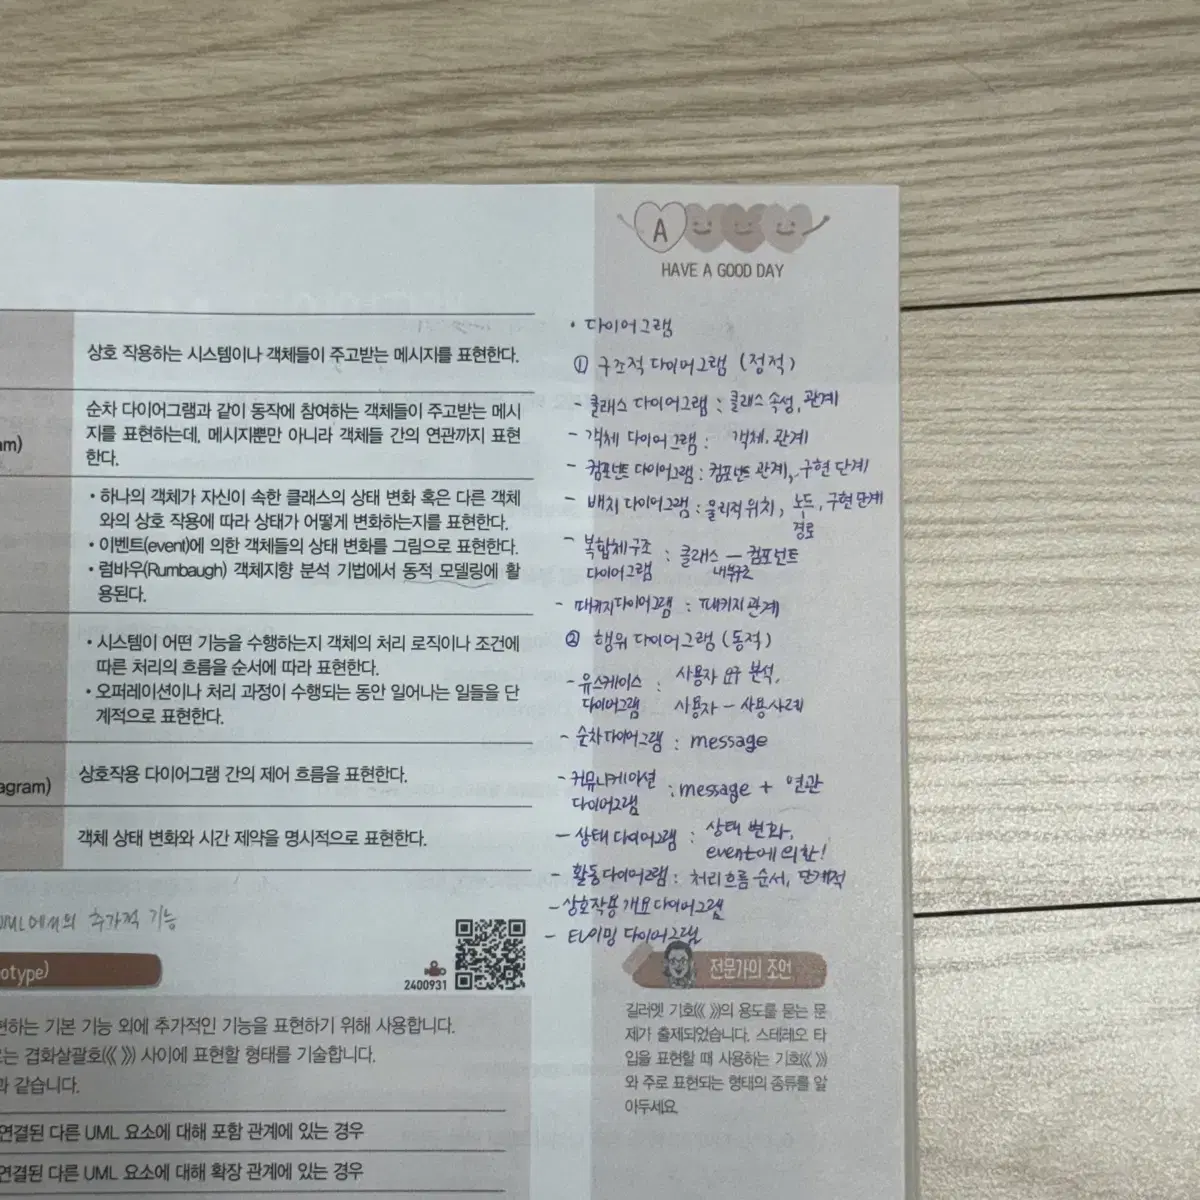 A
HAVE A GOOD DAY
상호 작용하는 시스템이나 객체들이 주고받는 메시지를 표현한다.
순차 다이어그램과 같이 동작에 참여하는 객체들이 주고받는 메시
지를 표현하는데, 메시지뿐만 아니라 객체들 간의 연관까지 표현
한다.
am)
• 하나의 객체가 자신이 속한 클래스의 상태 변화 혹은 다른 객체
와의 상호 작용에 따라 상태가 어떻게 변화하는지를 표현한다.
• 이벤트(event)에 의한 객체들의 상태 변화를 그림으로 표현한다.
• 럼바우(Rumbaugh) 객체지향 분석 기법에서 동적 모델링에 활
용된다.
• 시스템이 어떤 기능을 수행하는지 객체의 처리 로직이나 조건에
따른 처리의 흐름을 순서에 따라 표현한다.
• 오퍼레이션이나 처리 과정이 수행되는 동안 일어나는 일들을 단
계적으로 표현한다.
agram)
상호작용 다이어그램 간의 제어 흐름을 표현한다.
객체 상태 변화와 시간 제약을 명시적으로 표현한다.
UML에서의 추가적 기능
eotype)
2400931
현하는 기본 기능 외에 추가적인 기능을 표현하기 위해 사용합니다.
로는 겹화살괄호(《 》) 사이에 표현할 형태를 기술합니다.
과 같습니다.
연결된 다른 UML 요소에 대해 포함 관계에 있는 경우
연결된 다른 UML 요소에 대해 확장 관계에 있는 경우
• 다이어그램
① 구조적 다이어그램 (정적)
- 클래스 다이어그램 : 클래스 속성, 관계
- 객체 다이어그램 : 객체, 관계
- 컴포넌트 다이어그램 : 컴포넌트 관계, 구현 단계
- 배치 다이어그램 : 물리적 위치, 노드, 구현 단계
경로
- 복합체구조 : 클래스 — 컴포넌트
다이어그램 내부구조
- 패키지 다이어그램 : 패키지 관계
② 행위 다이어그램 (동적)
- 유스케이스 : 사용자 요구 분석,
다이어그램 사용자 - 사용사례
- 순차 다이어그램 : message
- 커뮤니케이션 : message + 연관
다이어그램
- 상태 다이어그램 : 상태 변화,
event에 의한!
- 활동 다이어그램 : 처리흐름 순서, 단계적
- 상호작용 개요 다이어그램
- 타이밍 다이어그램
전문가의 조언
길러멧 기호(《 》)의 용도를 묻는 문
제가 출제되었습니다. 스테레오 타
입을 표현할 때 사용하는 기호(《 》)
와 주로 표현되는 형태의 종류를 알
아두세요.